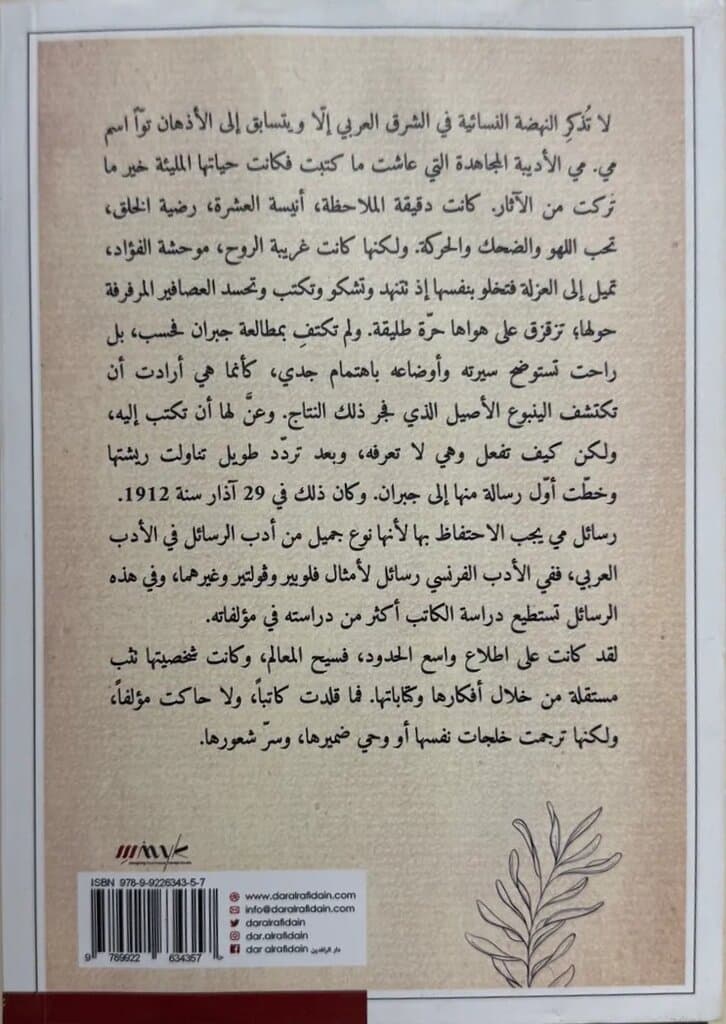 لا تُذكرِ النهضة النسائية في الشرق العربي إلّا ويتسابق إلى الأذهان توّاً اسم
مي. مي الأديبة المجاهدة التي عاشت ما كتبت فكانت حياتها المليئة خير ما
تركت من الآثار. كانت دقيقة الملاحظة، أنيسة العشرة، رضية الخلق،
تحب اللهو والضحك والحركة. ولكنها كانت غريبة الروح، موحشة الفؤاد،
تميل إلى العزلة فتخلو بنفسها إذ تتنهد وتشكو وتكتب وتحسد العصافير المرفرفة
حولها؛ تزقزق على هواها حرّة طليقة. ولم تكتفِ بمطالعة جبران فحسب، بل
راحت تستوضح سيرته وأوضاعه باهتمام جدي، كأنما هي أرادت أن
تكتشف الينبوع الأصيل الذي فجر ذلك النتاج. وعنَّ لها أن تكتب إليه،
ولكن كيف تفعل وهي لا تعرفه، وبعد تردّد طويل تناولت ريشتها
وخطّت أوّل رسالة منها إلى جبران. وكان ذلك في 29 آذار سنة 1912.
رسائل مي يجب الاحتفاظ بها لأنها نوع جميل من أدب الرسائل في الأدب
العربي، ففي الأدب الفرنسي رسائل لأمثال فلوبير وڤولتير وغيرهما، وفي هذه
الرسائل تستطيع دراسة الكاتب أكثر من دراسته في مؤلفاته.
لقد كانت على اطلاع واسع الحدود، فسيح المعالم، وكانت شخصيتها تثب
مستقلة من خلال أفكارها وكتاباتها. فما قلدت كاتباً، ولا حاكت مؤلفاً،
ولكنها ترجمت خلجات نفسها أو وحي ضميرها، وسرّ شعورها.
ISBN 978-9-9226343-5-7
9 789922 634357
www.daralrafidain.com
info@daralrafidain.com
daralrafidain
dar.alrafidain
dar alrafidain دار الرافدين